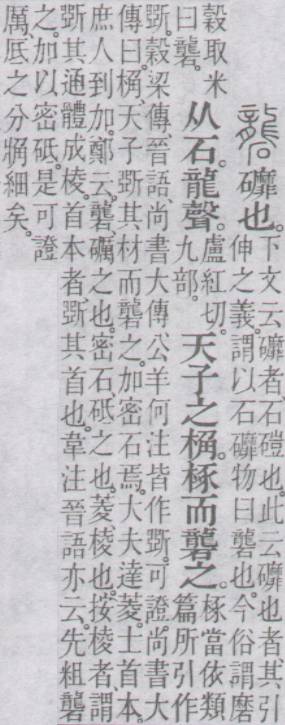 礱 䃺也。下文云䃺者、石磑也。此云䃺也者、其引
伸之義。謂以石䃺物曰礱也。今俗謂磨
穀取米
曰礱。
从石。龍聲。
盧紅切。
九部。
天子之桷。椓而礱之。
椓當依類
篇所引作
斲。穀梁傳、晉語、尚書大傳、公羊何注皆作斲。可證。尚書大
傳曰。桷、天子斲其材而礱之。加密石焉。大夫達菱。士首本。
庶人到加。鄭云。礱、礪之也。密石、砥之也。菱、棱也。按棱者、謂
斲其通體成棱。首本者、斲其首也。韋注晉語亦云。先粗礱
之。加以密砥。是可證
厲、厎之分觕細矣。